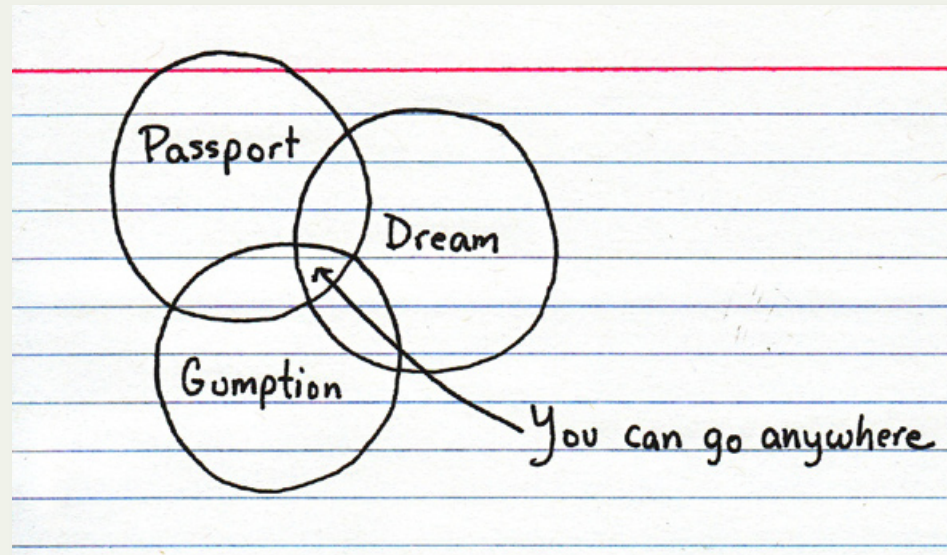 Passport
Dream
Gumption
You can go anywhere